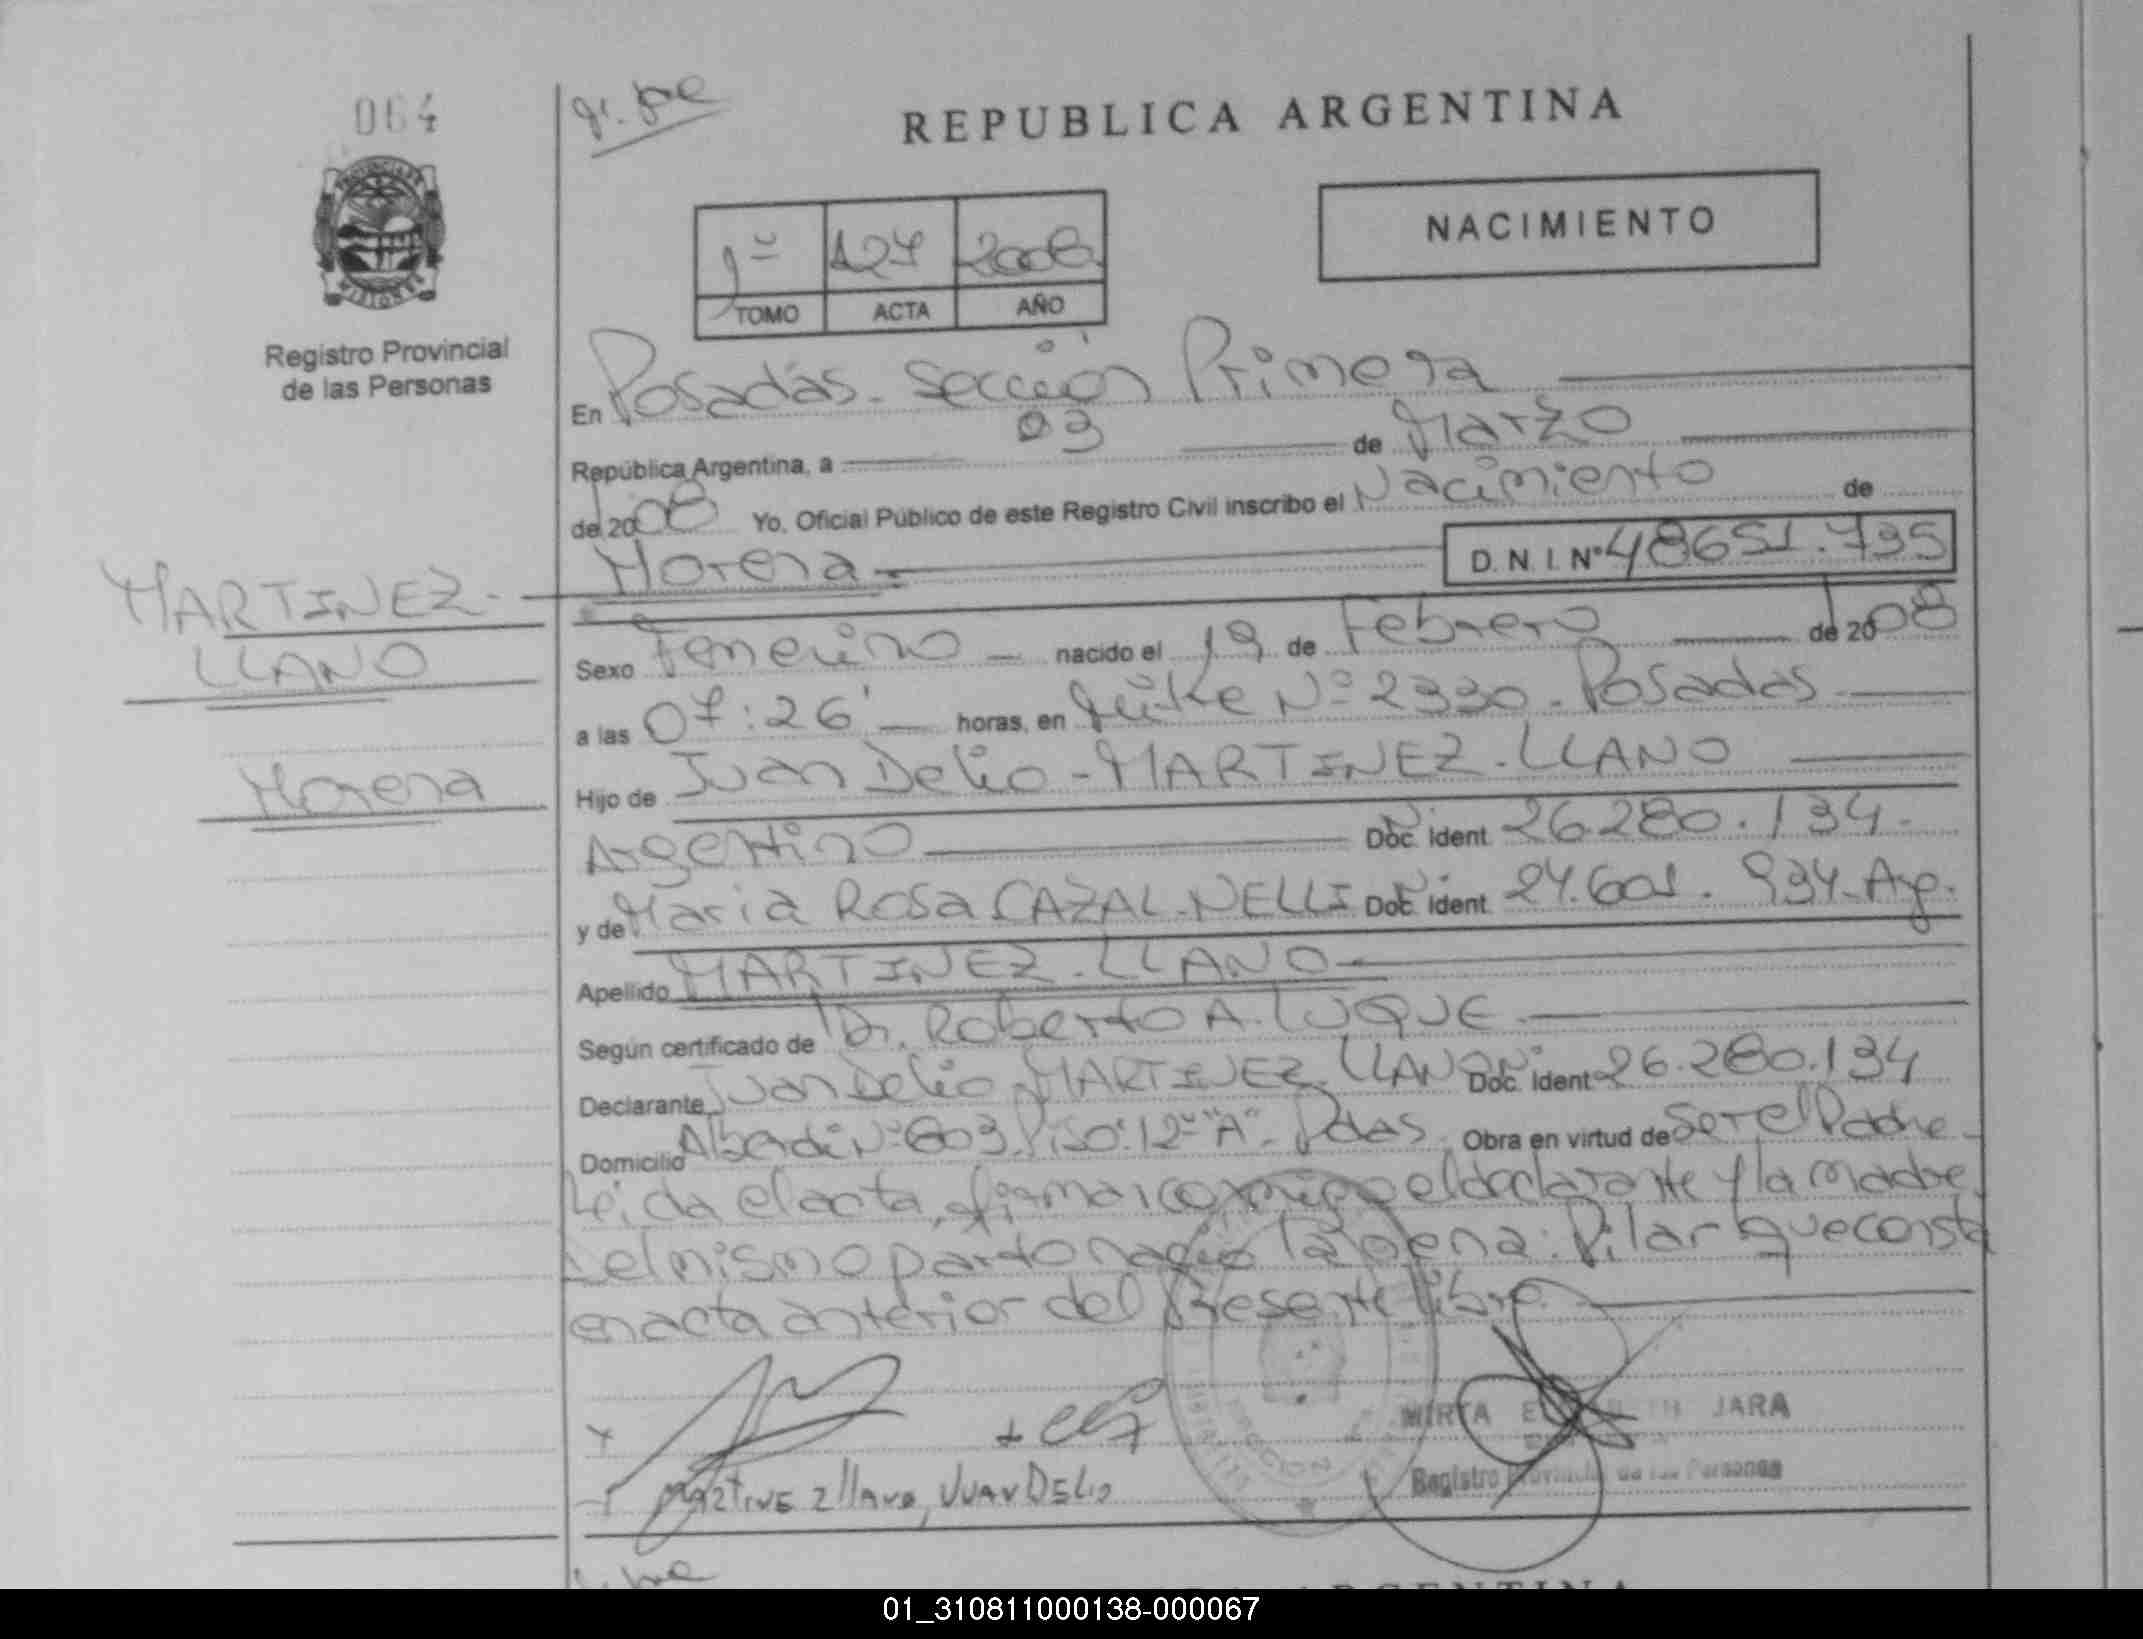 064
REPUBLICA ARGENTINA
NACIMIENTO
1º 127 2008
TOMO ACTA AÑO
Registro Provincial
de las Personas
En Posadas - Sección Primera
República Argentina, a 03 de Marzo
de 2008 Yo. Oficial Público de este Registro Civil inscribo el Nacimiento de
Morena.- D. N. I. Nº 48651.735
MARTINEZ-
LLANO
Morena
Sexo Femenino - nacido el 19 de Febrero de 2008
a las 07:26' horas, en Nº 2330 - Posadas
Hijo de Juan Delio - MARTINEZ-LLANO
Argentino Doc. Ident. 26280.134-
y de Maria Rosa CAZAL-NELLI Doc. Ident. 24.601.934-Arg.
Apellido MARTINEZ-LLANO-
Según certificado de Dr. Roberto A. LUQUE
Declarante Juan Delio-MARTINEZ-LLANO Doc. Ident. 26.280.134
Domicilio Alberdi Nº 603. Piso: 12-"A"- Pdas Obra en virtud de Ser el Padre
Leida el acta, firman conmigo el declarante y la madre.
Del mismo parto nació la nena: Pilar que consta
en acta anterior del Presente libro.
Martinez Llano, Juan Delio
MIRTA JARA
Registro Provincial de las Personas
01_310811000138-000067